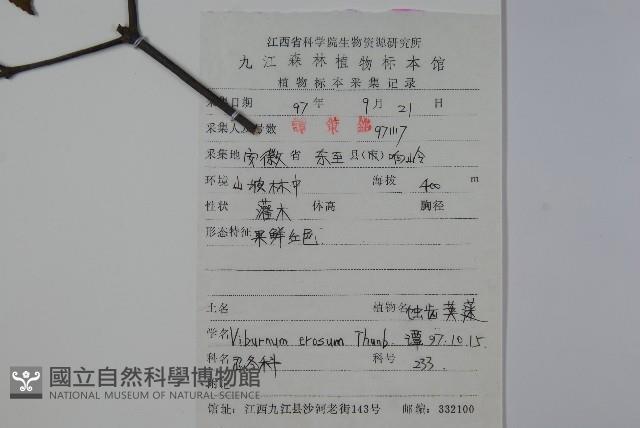 江西省科学院生物资源研究所
九江森林植物标本馆
植物标本采集记录
采集日期 97 年 9 月 21 日
采集人及号数 譚策銘 97117
采集地 安徽 省 东至 县(市) 岭
环境 山坡林中 海拔 400 m
性状 灌木 体高 胸径
形态特征 果鲜红色
土名 植物名 蚀齿荚蒾
学名 Viburnum erosum Thunb. 譚 97.10.15.
科名 忍冬科 科号 233.
附记
國立自然科學博物館
NATIONAL MUSEUM OF NATURAL SCIENCE
馆址:江西九江县沙河老街143号 邮编:332100